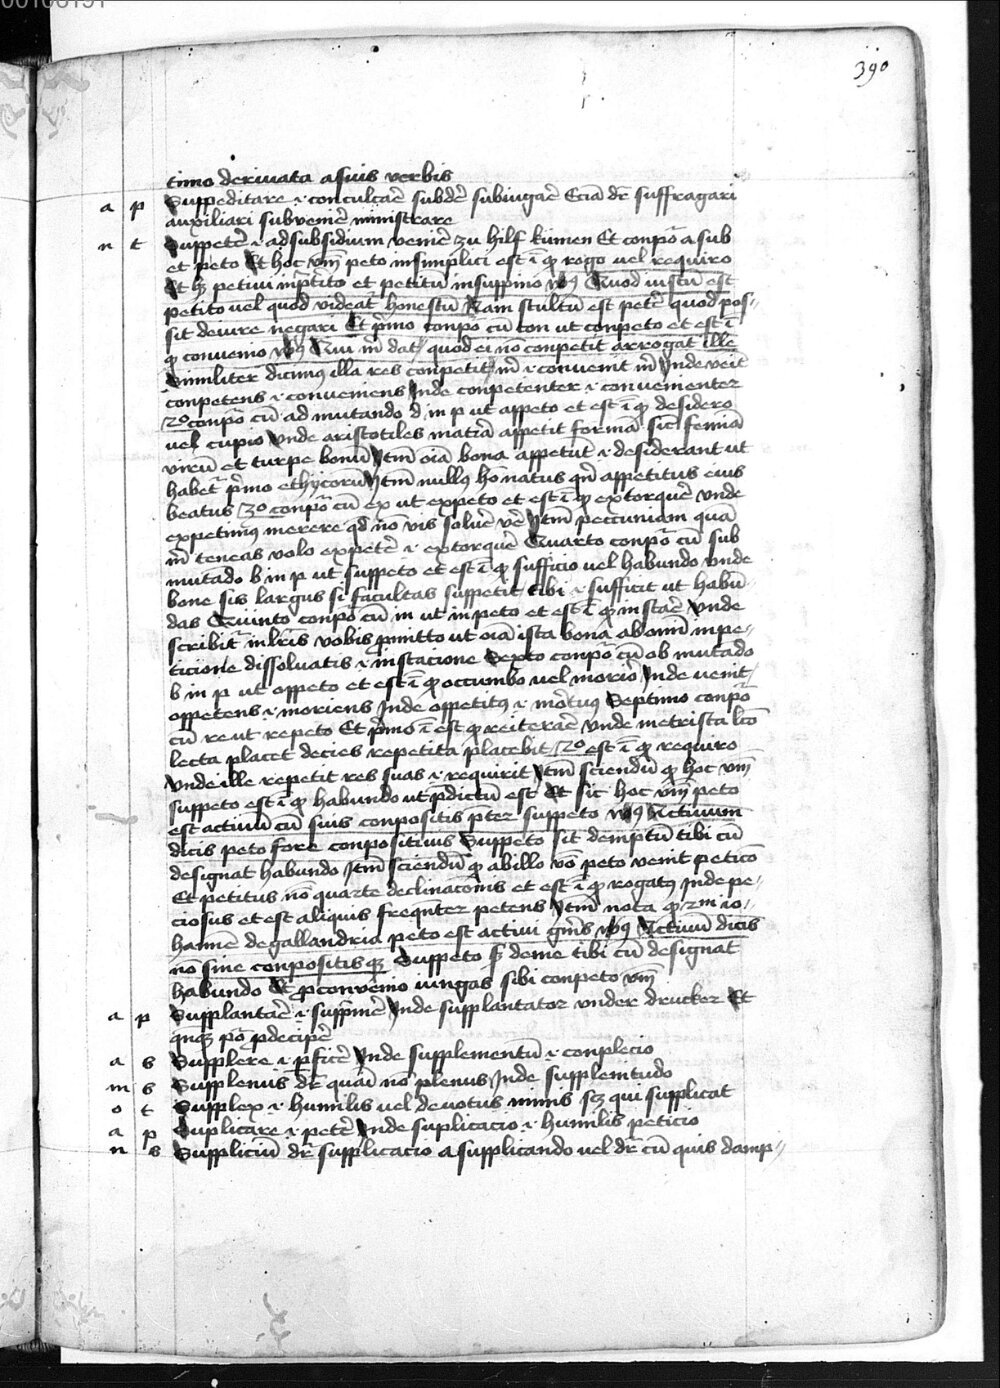 390
timo derivata a suis verbis
a p Suppeditare .i. conculcar̄e subder̄e subiugar̄e Ecia dr̄ suffragari
auxiliari subvenir̄e ministrare
n t Suppeter̄e .i. ad subsidium venir̄e zu hilf kumen Et conpōr a sub
et peto Et hoc vm̄ peto in simplici est .i. qͥ rogo vel requiro
Et hꝫ petivi in p̄terito et petitū in suppino vͥsꝫ Quod iustū est
petito vel quod videat̄ honestū Nam stultū est peter̄e quod pos-
sit de iure negari Et p̄mo conpōr cū con ut conpeto et est .i.
qͥ convenio vͥsꝫ Qui m̄ dat, quod ei nō conpetit arrogat ille
Similiter dicimꝰ illa res conpetit m̄ .i. convenit m̄ Inde veīt
conpetens .i. conveniens Inde conpetenter .i. convenienter
2º conpōr cū ad mutando d in p ut appeto et est .i. qͥ desidero
vel cupio Vnde aristotiles matīa appetit formā sic̄ femīā
virū et turpe bonū Itm̄ oīa bona appetūt .i. desiderant ut
habet̄ p̄mo ethycorū Itm̄ nullꝰ hō natus qn̄ appetitus eius
beatus 3º conpōr cū ex ut expeto et est .i. qͥ extorquer̄e vnde
expetimꝰ merere qd̄ nō vis solver̄e Itm̄ peccuniam quā
m̄ teneas volo expeter̄e .i. extorquer̄e Quarto conpōr cū sub
mutādo b in p ut suppeto et est .i. qͥ sufficio vel habundo vnde
bone sis largus si facultas suppetit tibi .i. sufficit ut habū-
das Quinto conpōr cū in ut inpeto et est .i. qͥ instar̄e Vnde
scribit̄ in lr̄is vobis p̄mitto ut oīa ista bona ab omī inpe-
ticione dissolvatis .i. instacione Sexto conpōr cū ob mutādo
b in p ut oppeto et est .i. qͥ occumbo vel morior Inde venit
oppetens .i. moriens Inde oppetitꝰ .i. mortuꝰ Septimo conpōr
cū re ut repeto Et p̄mo .i. est qͥ reiterar̄e Vnde metrista lcō
lecta placet decies repetita placebit 2º est .i. qͥ requiro
Vnde ille repetit res suas .i. requirit Itm̄ sciendū qͥ hoc vm̄
suppeto est .i. qͥ habundo ut p̄dictū est Et sic hoc vm̄ peto
est activū cū suis conpositis p̄ter suppeto vͥsꝫ Activum
dicis peto fore conpositivis Suppeto sit demptū tibi cū
designat habundo Itm̄ sciendū qͥ ab illo vō peto venit peticō
Et petitus nō quarte declinacōnis et est .i. qͥ rogatꝰ Inde pe-
ciosus et est aliquis freqn̄ter petens Itm̄ nota qͥ 2m̄ io-
hannē de gallandria peto est activi gn̄is vͥsꝫ Activū dicis
nō sine conpositisqꝫ Suppeto sꝫ deme tibi cū designat
habundo Et p̄ convenio iungas sibi conpeto vm̄
a p Supplantar̄e .i. supp̄mer̄e Inde supplantator vnder drucker Et
qn̄qꝫ pō p̄ decipe̅re
a s Supplere .i. p̄ficer̄e Inde supplementū .i. conplecio
m s Supplenus dr̄ quasi nō plenus Inde supplenitudo
o t Supplex .i. humilis vel devotus nimis scꝫ qui supplicat
a p Suplicare .i. peter̄e Inde suplicacio .i. humilis peticio
n s Suppliciū dr̄ supplicacio a supplicando vel dr̄ cū quis damp-